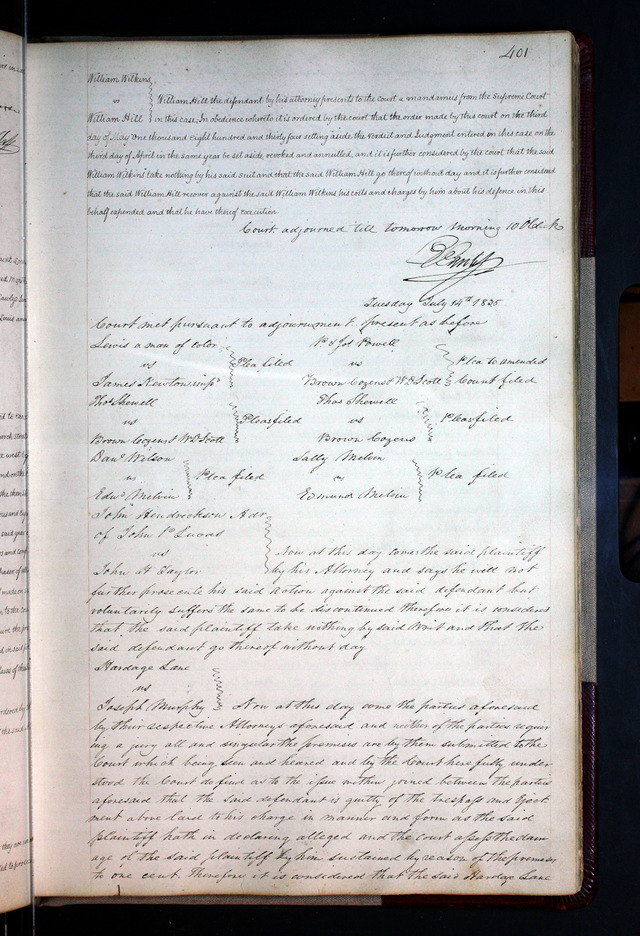 401
William Wilkins
vs William Hill the defendant by his attorney presents to the court a mandamus from the Supreme Court
William Hill in this case; In obedience whereto it is ordered by the court that the order made by this court on the third
day of May One thousand eight hundred and thirty four setting aside the Verdict and Judgment entered in this case on the
third day of April in the same year be set aside, revoked and annulled, and it is further considered by the court that the said
William Wilkins take nothing by his said suit and that the said William Hill go thereof without day and it is further considered
that the said William Hill recover against the said William Wilkins his costs and charges by him about his defence in this
behalf expended, and that he have thereof execution
Court adjourned 'till tomorrow morning 10 OClock
Tuesday July 14th 1835
Court met pursuant to adjournment present as before
Lewis a man of color
vs Plea filed
James Newton impd
Jos Powell
vs Plea to amended
Brown Cozens & WD Scott Count filed
Thos Shewell
vs Pleas filed
Brown Cozens & WD Scott
Thos Shewell
vs Pleas filed
Brown Cozens
Danl Wilson
vs Plea filed
Edwd Melvin
Sally Melvin
vs Plea filed
Edmund Melvin
John Hendrickson Adr
of John Lucas
vs Now at this day comes the said plaintiff
John Taylor by his Attorney and says he will not
further prosecute his said action against the said defendant but
voluntarily suffers the same to be discontinued therefore it is considered
that the said plaintiff take nothing by said Writ and that the
said defendant go thereof without day
Hardage Lane
vs
Joseph Murphy Now at this day come the parties aforesaid
by their respective Attorneys aforesaid and neither of the parties requir
ing a jury all and singular the premises are by them submitted to the
Court which being seen and heared and by the Court here fully under
stood the Court do find as to the issue within joined between the parties
aforesaid that the said defendant is guilty of the trespass and Eject
ment above laid to his charge in manner and form as the said
plaintiff hath in declaring alleged and the court assess the dam
age of the said plaintiff by him sustained by reason of the premises
to one cent. Therefore it is considered that the said Hardage Lane